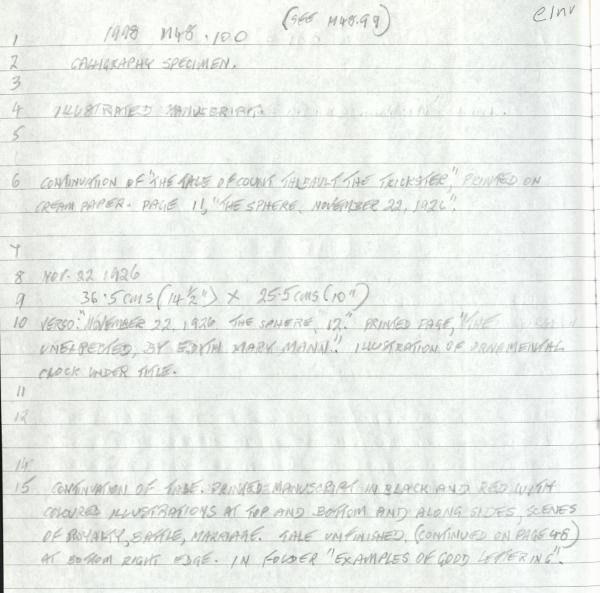 (SEE M48.99) eInv
1 1998 M48.100
2 CALLIGRAPHY SPECIMEN.
3
4 ILLUSTRATED MANUSCRIPT.
5
6 CONTINUATION OF "THE TALE OF COUNT THIBAULT THE TRICKSTER," PRINTED ON
CREAM PAPER. PAGE 11, "THE SPHERE, NOVEMBER 22, 1926".
7
8 NOV. 22 1926
9 36.5 cms (14 1/2") X 25.5 cms (10")
10 VERSO: "NOVEMBER 22, 1926 THE SPHERE, 12." PRINTED PAGE, "THE
UNEXPECTED, BY EDYTH MARY MANN". ILLUSTRATION OF ORNAMENTAL
CLOCK UNDER TITLE.
11
12
14
15 CONTINUATION OF TALE. PRINTED MANUSCRIPT IN BLACK AND RED WITH
COLOURED ILLUSTRATIONS AT TOP AND BOTTOM AND ALONG SIDES, SCENES
OF ROYALTY, BATTLE, MARRIAGE. TALE UNFINISHED, (CONTINUED ON PAGE 46)
AT BOTTOM RIGHT EDGE. IN FOLDER "EXAMPLES OF GOOD LETTERING".